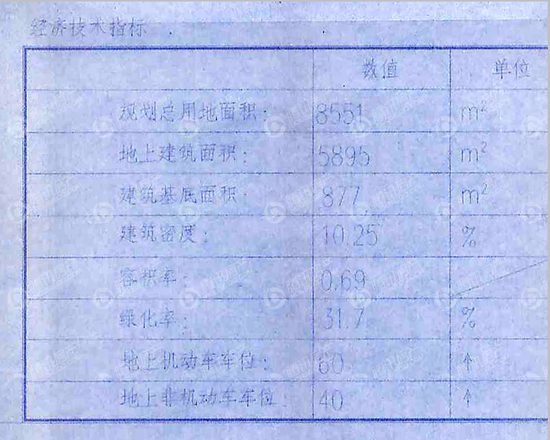 经济技术指标
数值 单位
规划总用地面积: 8551 m²
地上建筑面积: 5895 m²
建筑基底面积: 877 m²
建筑密度: 10.25 %
容积率: 0.69
绿化率: 31.7 %
地上机动车车位: 60 个
地上非机动车车位: 40 个